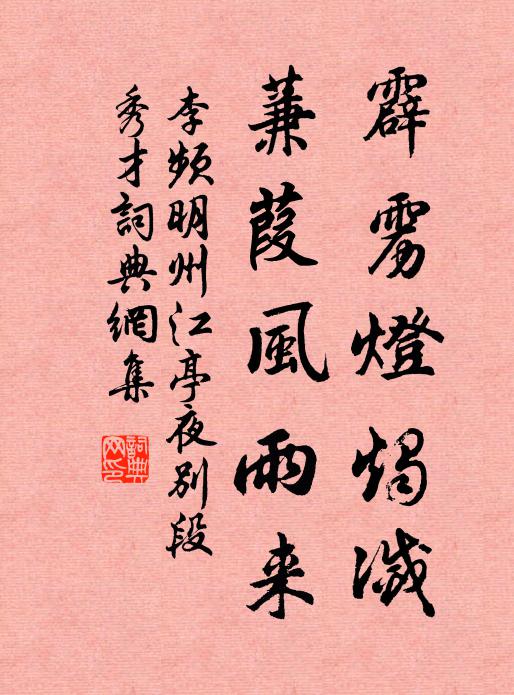 霹雳燈燭滅
蒹葭風雨来
李频明州江亭夜别段
秀才詞典網集
詞典网印